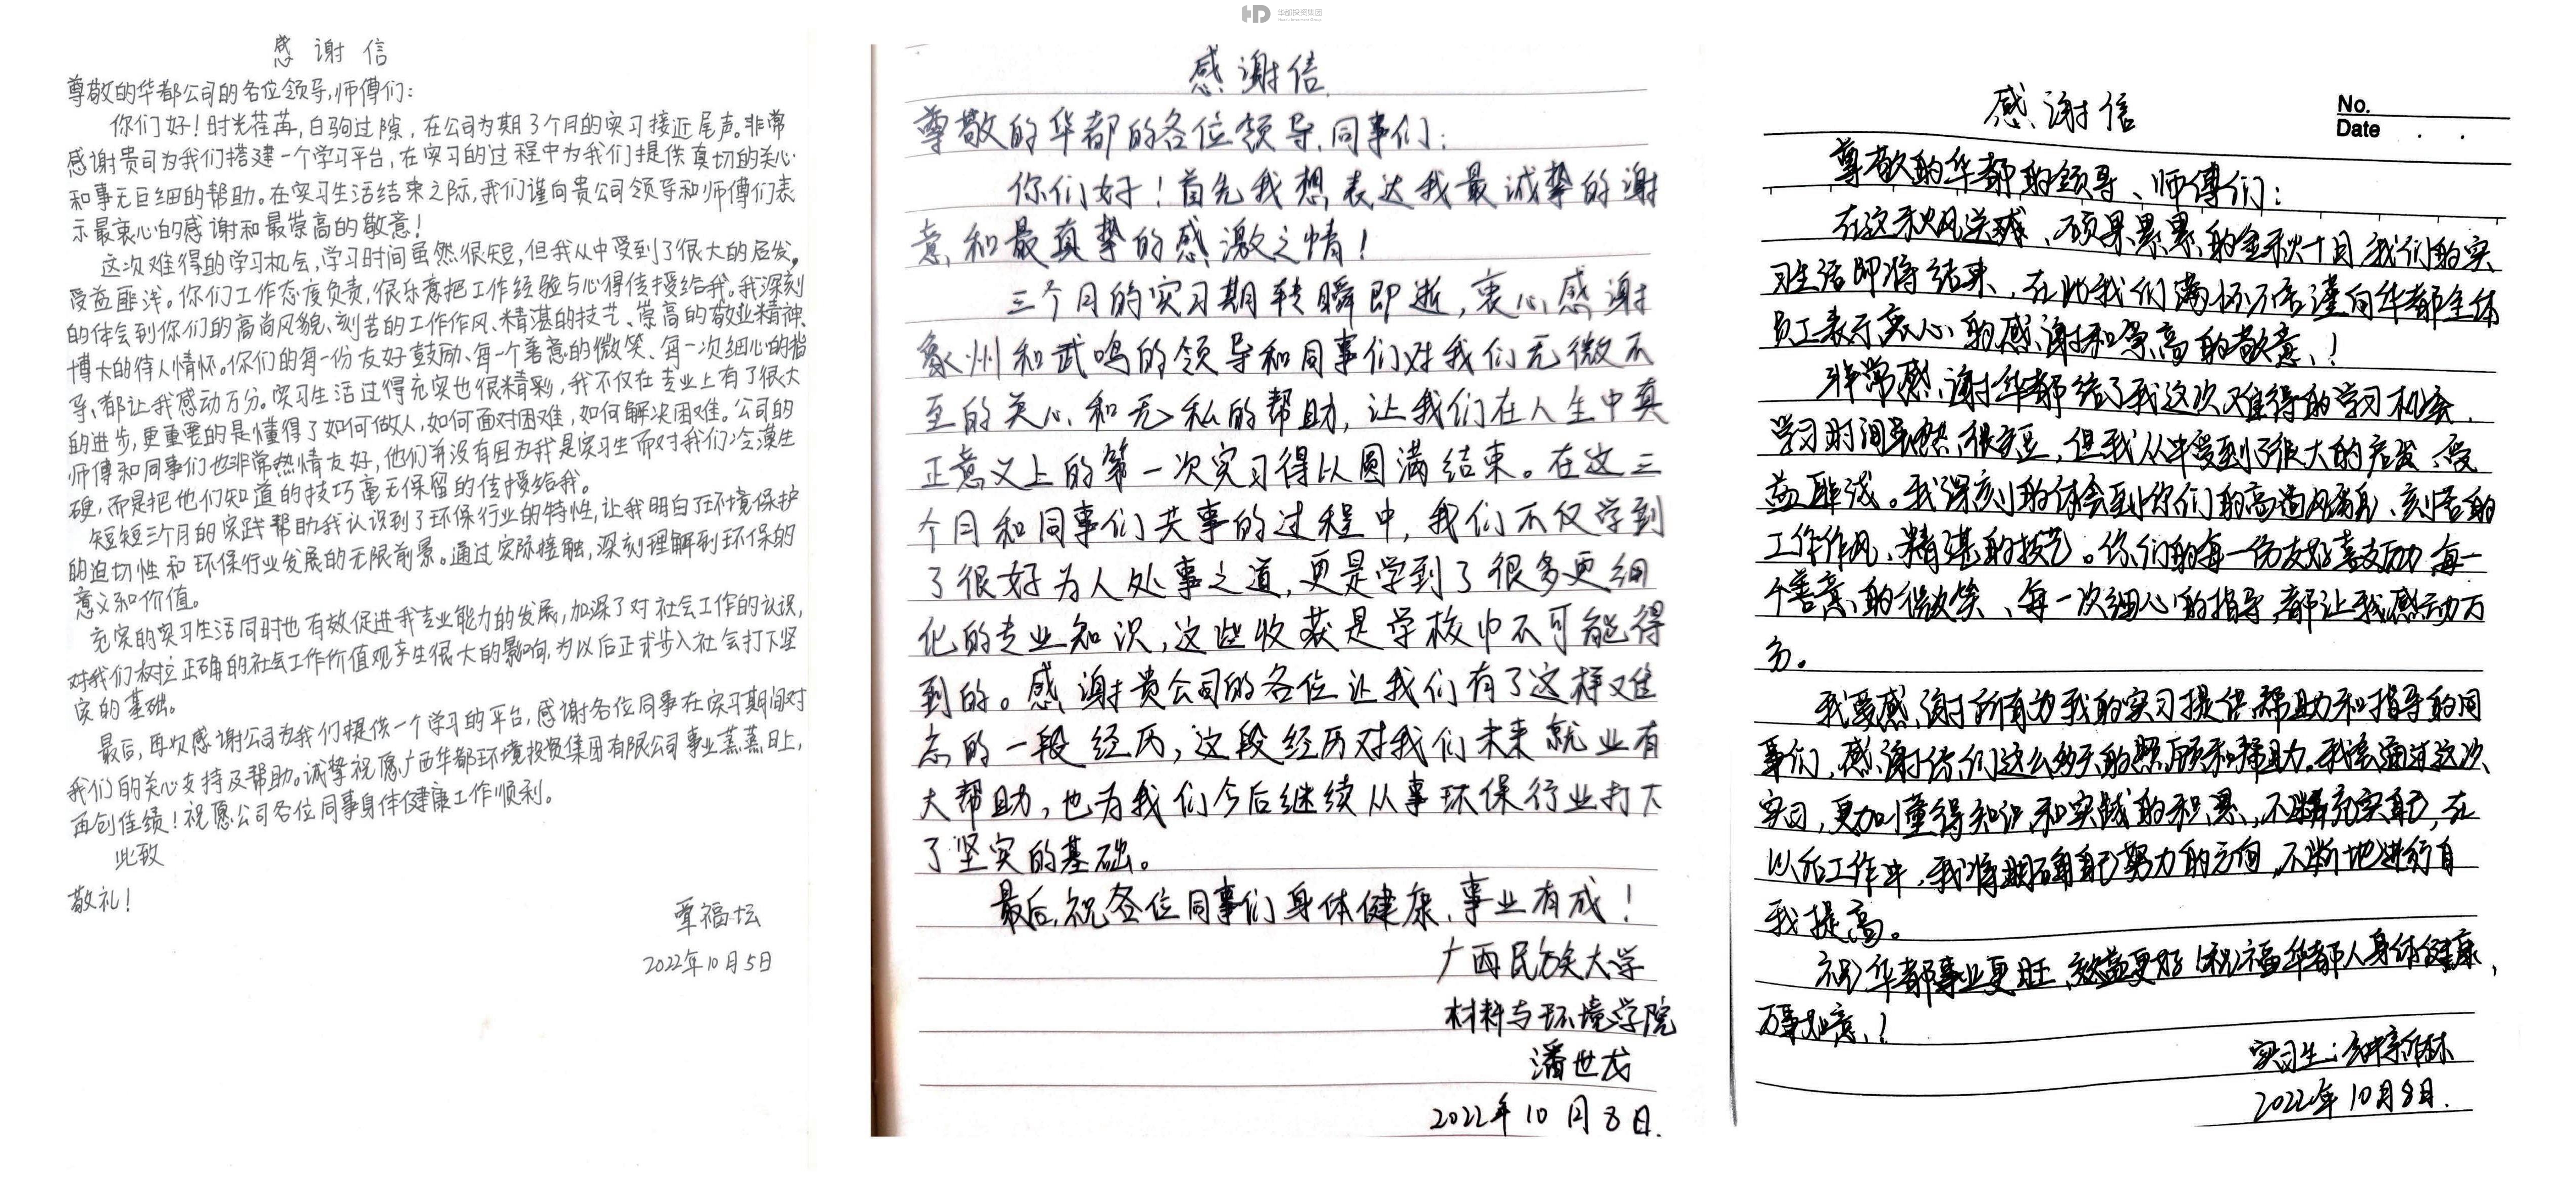 HD 华都投资集团
感谢信
尊敬的华都公司的各位领导,师傅们:
你们好!时光荏苒,白驹过隙,在公司为期3个月的实习接近尾声。非常
感谢贵司为我们搭建一个学习平台,在实习的过程中为我们提供真切的关心
和事无巨细的帮助。在实习生活结束之际,我们谨向贵公司领导和师傅们表
示最衷心的感谢和最崇高的敬意!
这次难得的学习机会,学习时间虽然很短,但我从中受到了很大的启发,
受益匪浅。你们工作态度负责,很乐意把工作经验与心得传授给我。我深刻
的体会到你们的高尚风貌、刻苦的工作作风、精湛的技艺、崇高的敬业精神、
博大的待人情怀。你们的每一份友好鼓励、每一个善意的微笑、每一次细心的指
导,都让我感动万分。实习生活过得充实也很精彩,我不仅在专业上有了很大
的进步,更重要的是懂得了如何做人,如何面对困难,如何解决困难。公司的
师傅和同事们也非常热情友好,他们并没有因为我是实习生而对我们冷漠生
硬,而是把他们知道的技巧毫无保留的传授给我。
短短三个月的实践帮助我认识到了环保行业的特性,让我明白了环境保护
的迫切性和环保行业发展的无限前景。通过实际接触,深刻理解到环保的
意义和价值。
充实的实习生活同时也有效促进我专业能力的发展,加深了对社会工作的认识,
对我们树立正确的社会工作价值观产生很大的影响,为以后正式步入社会打下坚
实的基础。
最后,再次感谢公司为我们提供一个学习的平台,感谢各位同事在实习期间对
我们的关心支持及帮助。诚挚祝愿广西华都环境投资集团有限公司事业蒸蒸日上,
再创佳绩!祝愿公司各位同事身体健康工作顺利。
此致
敬礼!
覃福坛
2022年10月5日
感谢信
尊敬的华都的各位领导、同事们:
你们好!首先我想表达我最诚挚的谢
意和最真挚的感激之情!
三个月的实习期转瞬即逝,衷心感谢
象州和武鸣的领导和同事们对我们无微不
至的关心和无私的帮助,让我们在人生中真
正意义上的第一次实习得以圆满结束。在这三
个月和同事们共事的过程中,我们不仅学到
了很好为人处事之道,更是学到了很多更细
化的专业知识,这些收获是学校中不可能得
到的。感谢贵公司的各位让我们有了这样难
忘的一段经历,这段经历对我们未来就业有
大帮助,也为我们今后继续从事环保行业打下
了坚实的基础。
最后,祝各位同事们身体健康、事业有成!
广西民族大学
材料与环境学院
潘世龙
2022年10月8日.
感谢信
No.
Date . .
尊敬的华都的领导、师傅们:
在这秋风送爽、硕果累累的金秋十月我们的实
习生活即将结束,在此我们满怀谨向华都全体
员工表示衷心的感谢和崇高的敬意!
非常感谢华都给了我这次难得的学习机会,
学习时间虽然很短,但我从中受到了很大的启发、受
益匪浅。我深刻的体会到你们的高尚风貌、刻苦的
工作作风、精湛的技艺。你们的每一份友好鼓励每一
个善意的微笑、每一次细心的指导都让我感动万
分。
我要感谢所有为我的实习提供帮助和指导的同
事们,感谢你们这么多天的照顾和帮助。我会通过这次
实习,更加懂得知识和实践的积累,不断充实自己,在
以后工作中,我将明确自己努力的方向,不断地进行自
我提高。
祝华都事业更旺、效益更好!祝福华都人身体健康,
万事如意!
实习生:
2022年10月8日.